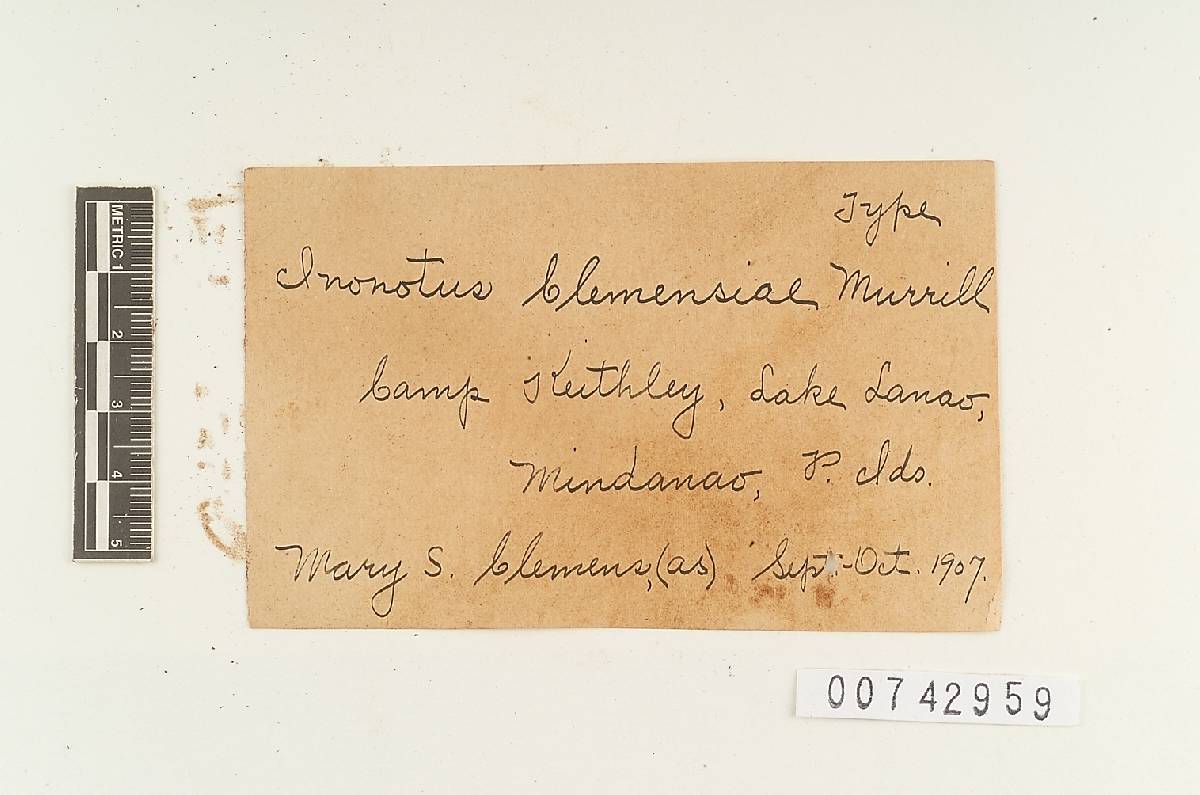 Type
Inonotus Clemensiae Murrill
Camp Keithley, Lake Lanao,
Mindanao, P. Ids.
Mary S. Clemens, (as) Sept.-Oct. 1907.
METRIC 1
2
3
4
5
00742959